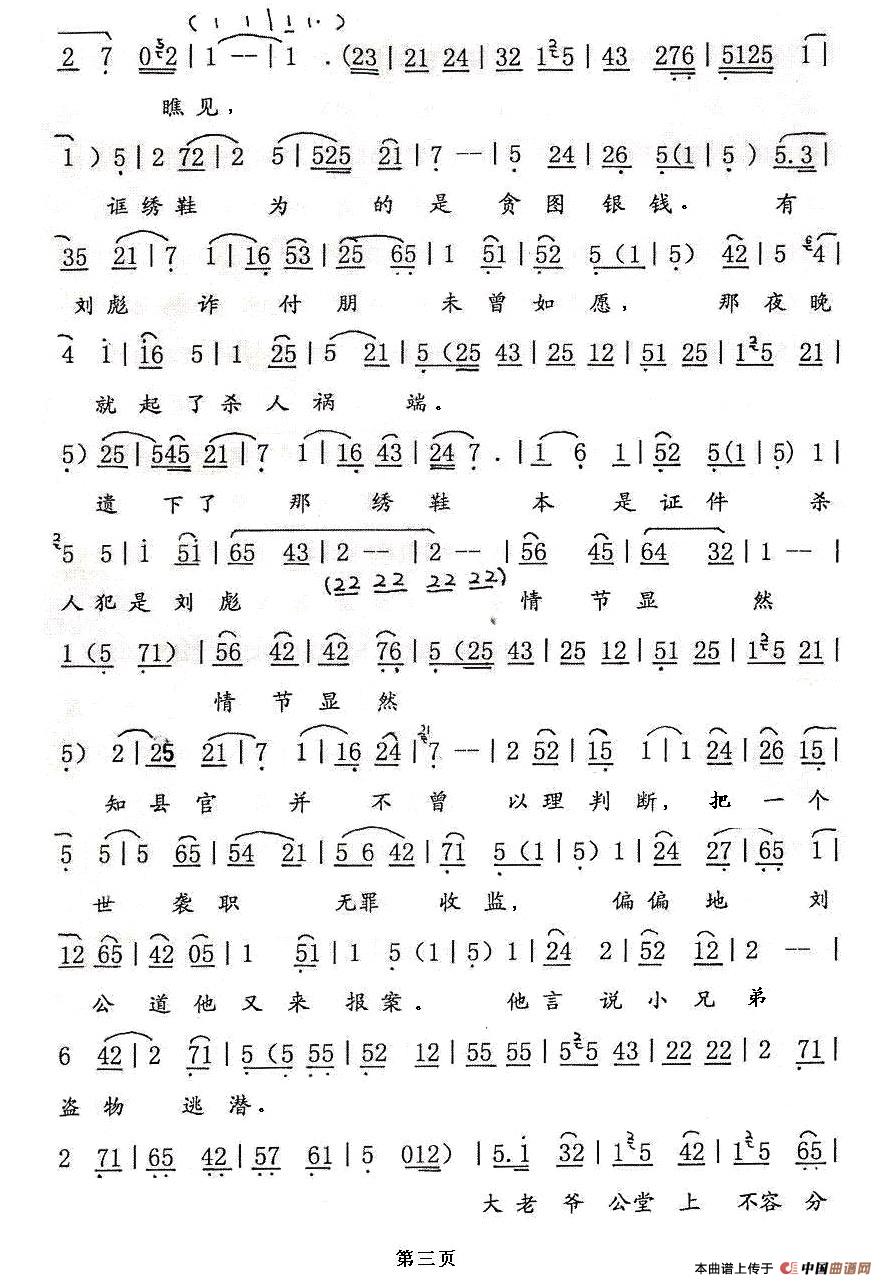 ( 1 1 | 1 1· )
2 7 032 | 1 -- | 1 . (23 | 21 24 | 32 125 | 43 276 | 5125 1 |
瞧见,
1 ) 5 | 2 72 | 2 5 | 525 21 | 7 -- | 5 24 | 26 5(1 | 5 ) 5.3 |
诓绣鞋 为 的是贪图银钱。有
35 21 | 7 1 | 16 53 | 25 65 | 1 51 | 52 5 (1 | 5) 42 | 5 64 |
刘彪 诈 付朋 未曾如愿, 那夜晚
4 1 | 16 5 | 1 25 | 5 21 | 5 (25 43 | 25 12 | 51 25 | 125 21 |
就起了杀人祸 端。
5) 25 | 545 21 | 7 1 | 16 43 | 24 7 . | 1 6 1 | 52 5(1 | 5) 1 |
遗 下了 那 绣鞋 本 是证件 杀
2 5 5 | 1 51 | 65 43 | 2 -- | 2 -- | 56 45 | 64 32 | 1 -- |
(22 22 22 22)
人犯是刘彪 情 节显 然
1 (5 71) | 56 42 | 42 76 | 5 (25 43 | 25 12 | 51 25 | 125 21 |
情 节显 然
5) 2 | 25 21 | 7 1 | 16 24 | 21 7 -- | 2 52 | 15 1 | 1 24 | 26 15 |
知县官 并 不曾 以理判断, 把一个
5 5 | 5 65 | 54 21 | 5 6 42 | 71 5 (1 | 5) 1 | 24 27 | 65 1 |
世 袭职 无罪 收监, 偏偏地 刘
12 65 | 42 05 | 1 51 | 1 5 (1 | 5) 1 | 24 2 | 52 12 | 2 -- |
公 道他又来 报案。 他言 说小兄弟
6 42 | 2 71 | 5 (5 55 | 52 12 | 55 55 | 525 43 | 22 22 | 2 71 |
盗物 逃潜。
2 71 | 65 42 | 57 61 | 5 012) | 5.1 32 | 125 42 | 125 65 |
大老爷公堂上 不容分
第三页
本曲谱上传于 中国曲谱网